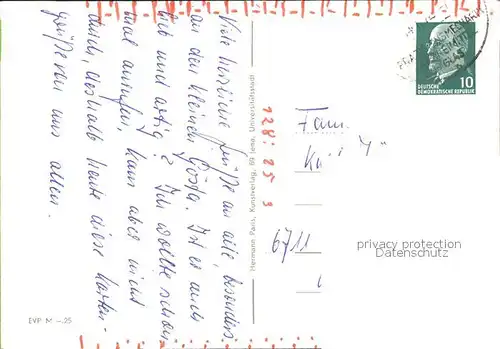 Viele herzliche Grüße an alle, besonders
an den kleinen Gösta. Ist er auch
lieb und artig? Ich wollte schon
mal anrufen, kam aber nicht
durch, deshalb heute diese Karten-
grüße von uns allen.
EVP M -.25
Hermann Paris, Kunstverlag, 69 Jena, Universitätsstadt
128: 25
DEUTSCHE
DEMOKRATISCHE REPUBLIK
10
Fam.
6711
privacy protection
Datenschutz